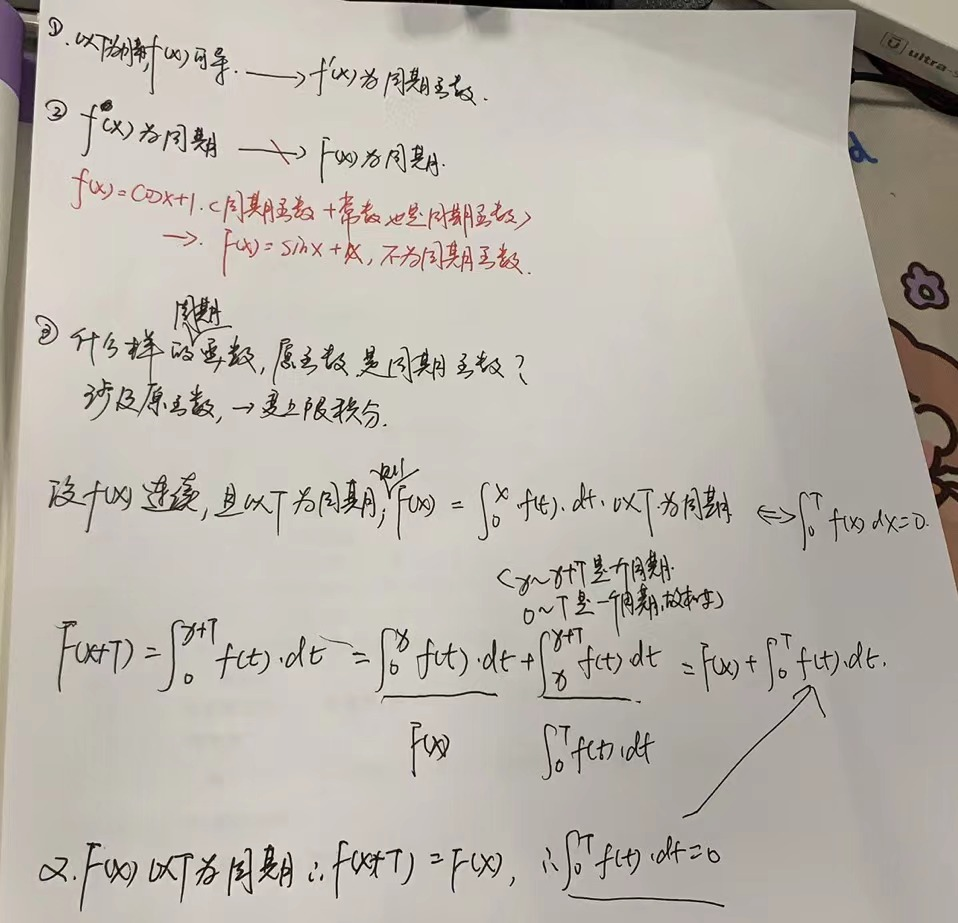 ①. 以T为周期,f(x)可导. → f'(x)为周期函数.
② f(x)为周期 ↛ F(x)为周期.
f(x)=cosx+1.<周期函数+常数也是周期函数>
→. F(x)=sinx+x, 不为周期函数.
③ 什么样周期的函数, 原函数是周期函数?
涉及原函数, → 变上限积分.
设f(x)连续, 且以T为周期, 则F(x) = ∫₀ˣ f(t)·dt·以T为周期 ⇔ ∫₀ᵀ f(x) dx=0.
<x~x+T是一个周期.
0~T是一个周期,故相等>
F(x+T) = ∫₀ˣ⁺ᵀ f(t)·dt = ∫₀ˣ f(t)·dt + ∫ₓˣ⁺ᵀ f(t) dt = F(x) + ∫₀ᵀ f(t)·dt.
F(x) ∫₀ᵀ f(t)·dt
又. F(x)以T为周期 ∴ F(x+T) = F(x), ∴ ∫₀ᵀ f(t)·dt=0
ultra-